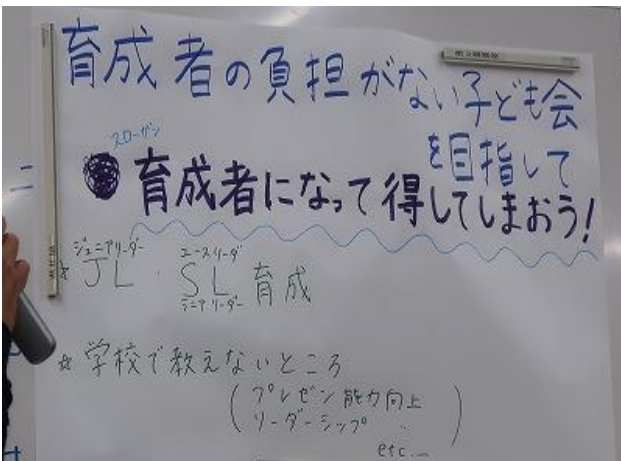 育成者の負担がない子ども会
を目指して
スローガン
● 育成者になって得してしまおう!
ジュニアリーダー ユースリーダー
☆ JL・SL 育成
シニアリーダー
☆ 学校で教えないところ
(プレゼン能力向上
リーダーシップ 〃)
etc...